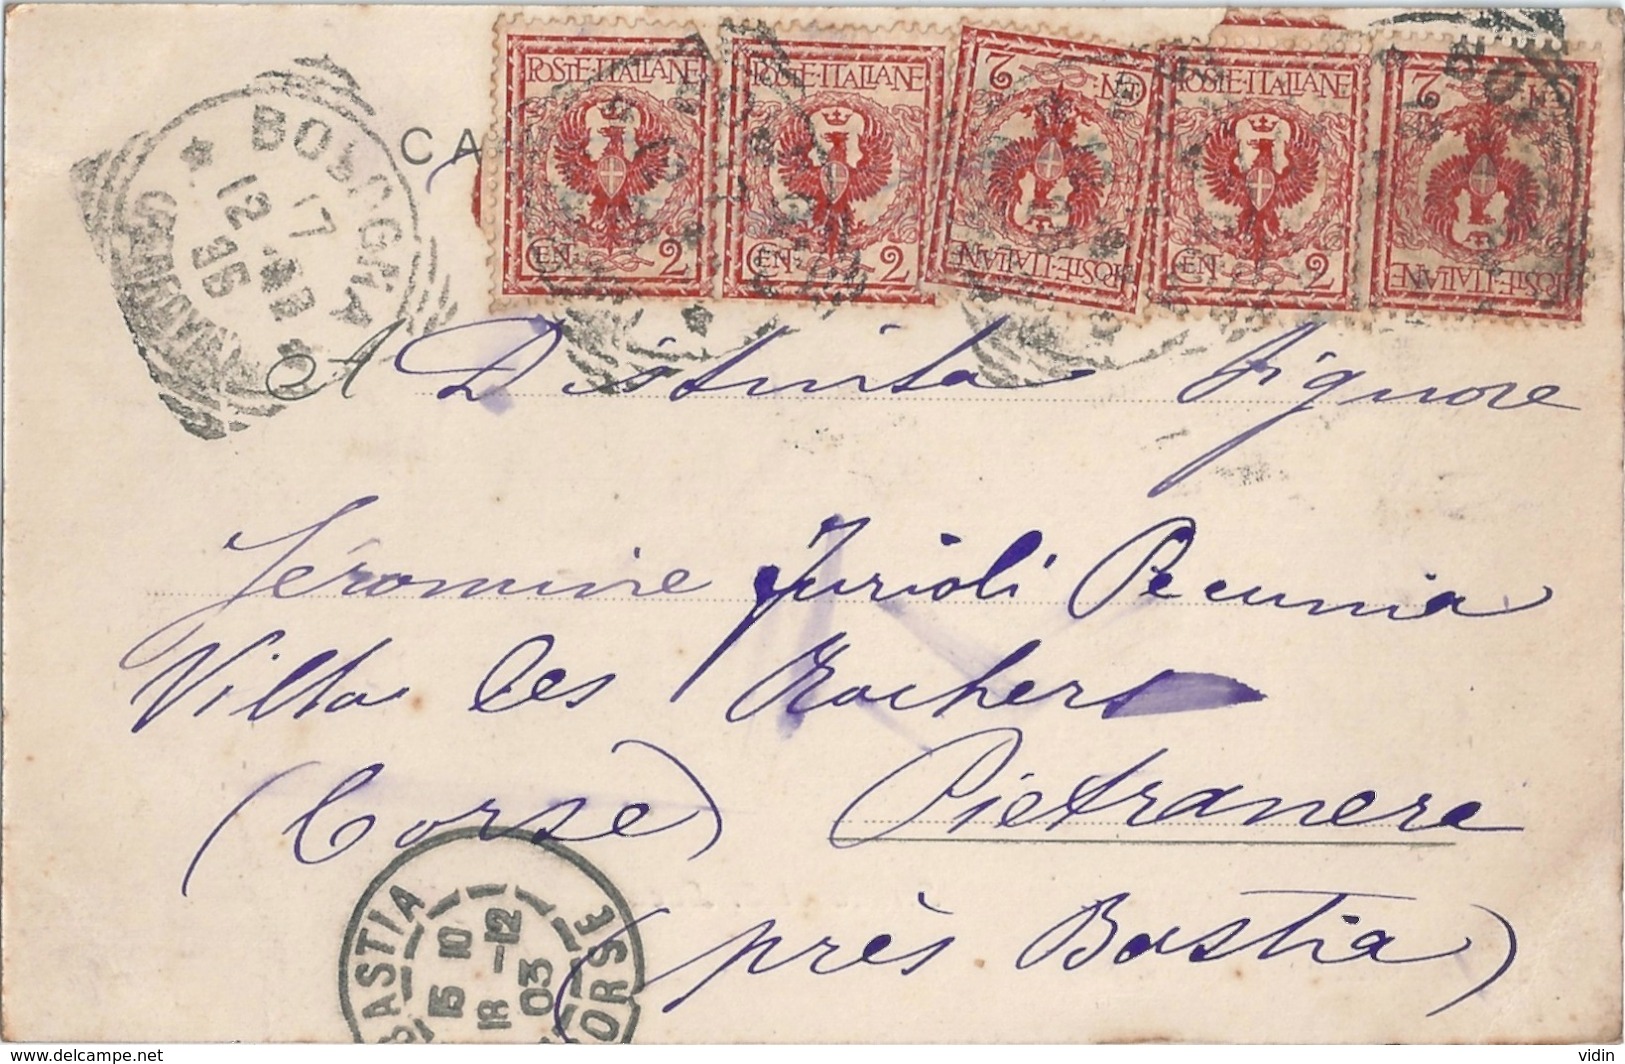 CA
POSTE·ITALIANE
CEN: 2
POSTE·ITALIANE
CEN: 2
POSTE·ITALIANE
CEN: 2
POSTE·ITALIANE
CEN: 2
POSTE·ITALIANE
CEN: 2
BOLOGNA
17
12
A Distinta Signore
Jéromine Jurioli Pecunia
Villa les Rochers
(Corse) Pietranera
(près Bastia)
BASTIA
15 10
18 -12
03
CORSE
https://www.delcampe.net
vidin